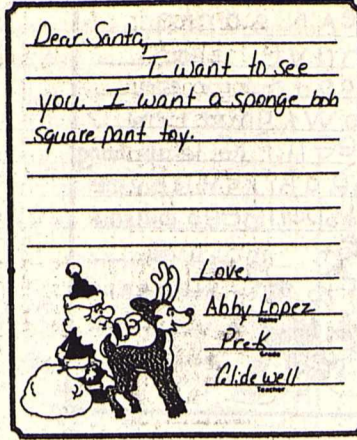 Dear Santa,
I want to see
you. I want a sponge bob
square pant toy.
Love,
Abby Lopez
Name
Pre-K
Grade
Glidewell
Teacher